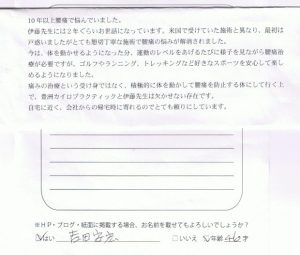 10年以上腰痛で悩んでいました。
伊藤先生には2年ぐらいお世話になっています。米国で受けていた施術と異なり、最初は
戸惑いましたがとても懇切丁寧な施術で腰痛の悩みが解消されました。
今は、体を動かせるようになった分、運動のレベルをあげるたびに様子を見ながら腰痛治
療が必要ですが、ゴルフやランニング、トレッキングなど好きなスポーツを安心して楽し
めるようになりました。
痛みの治療という受け身ではなく、積極的に体を動かして腰痛を防止する体にして行く上
で、豊洲カイロプラクティックと伊藤先生は欠かせない存在です。
自宅に近く、会社からの帰宅時に寄れるのでとても頼りにしています。
※HP・ブログ・紙面に掲載する場合、お名前を載せてもよろしいでしょうか？
はい 吉田 □いいえ 年齢 46 才